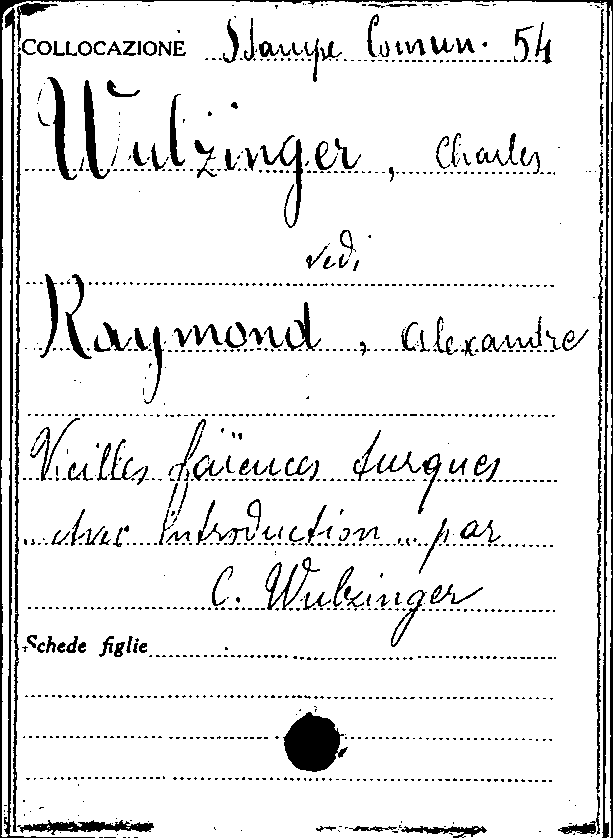 COLLOCAZIONE Stampe Comun. 54
Wulzinger, Charles
vedi
Raymond, Alexandre
Vieilles faïences turques
.. avec introduction .. par
C. Wulzinger
Schede figlie